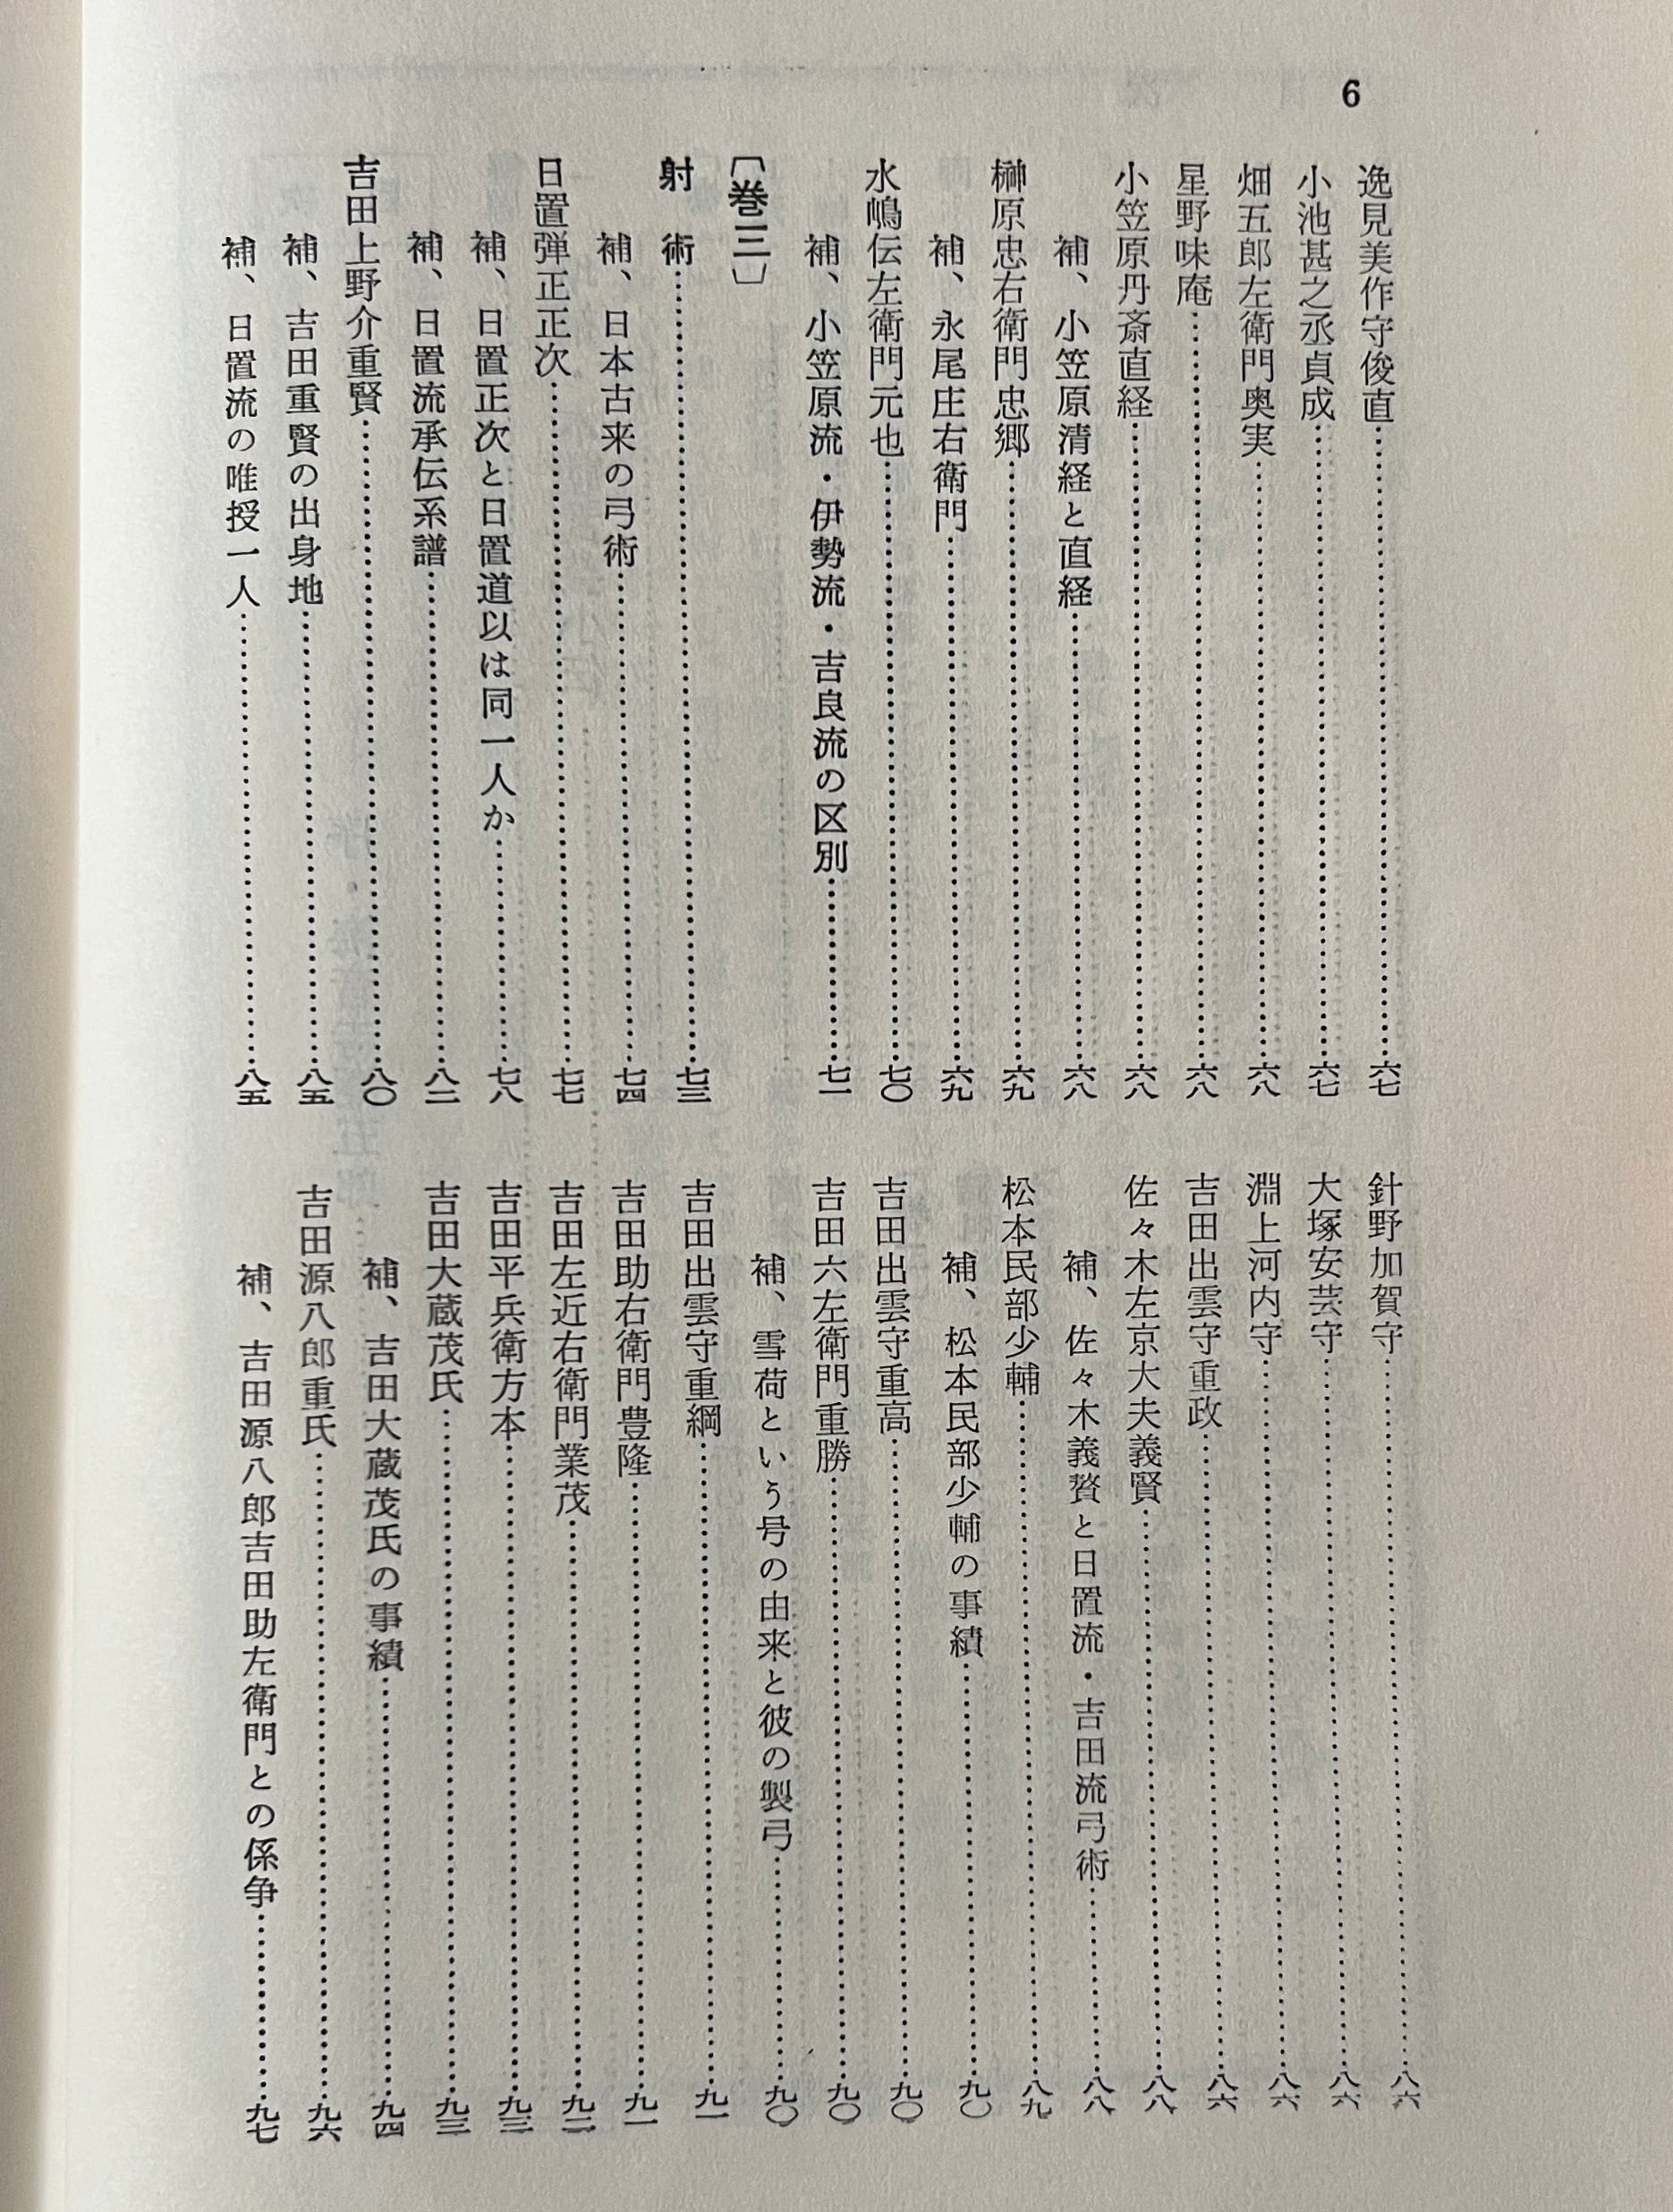 6
逸見美作守俊直……六七
小池甚之丞貞成……六七
畑五郎左衛門奥実……六八
星野味庵……六八
小笠原丹斎直経……六八
補、小笠原清経と直経……六八
榊原忠右衛門忠郷……六九
補、永尾庄右衛門……六九
水嶋伝左衛門元也……七〇
補、小笠原流・伊勢流・吉良流の区別……七一
〔巻三〕
射術……七三
補、日本古来の弓術……七四
日置弾正正次……七七
補、日置正次と日置道以は同一人か……七八
補、日置流承伝系譜……八二
吉田上野介重賢……八〇
補、吉田重賢の出身地……八五
補、日置流の唯授一人……八五
針野加賀守……八六
大塚安芸守……八六
淵上河内守……八六
吉田出雲守重政……八六
佐々木左京大夫義賢……八八
補、佐々木義賢と日置流・吉田流弓術……八八
松本民部少輔……八九
補、松本民部少輔の事績……九〇
吉田出雲守重高……九〇
吉田六左衛門重勝……九〇
補、雪荷という号の由来と彼の製弓……九〇
吉田出雲守重綱……九一
吉田助右衛門豊隆……九一
吉田左近右衛門業茂……九二
吉田平兵衛方本……九三
吉田大蔵茂氏……九三
補、吉田大蔵茂氏の事績……九四
吉田源八郎重氏……九六
補、吉田源八郎吉田助左衛門との係争……九七